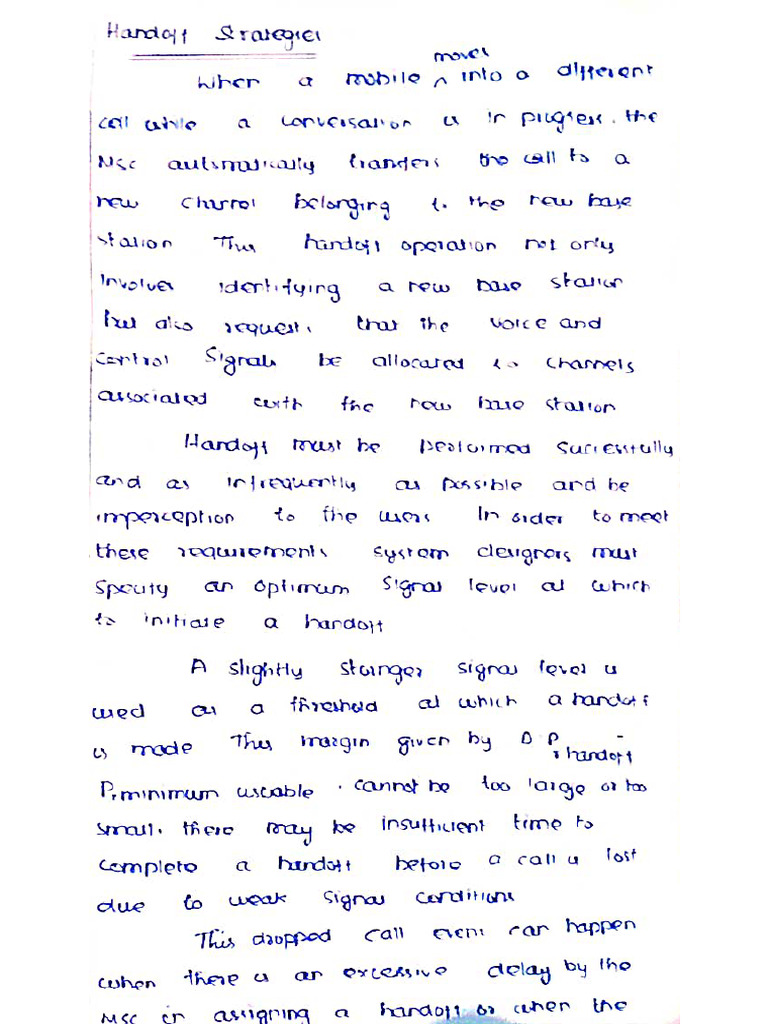 Handoff Strategies
When a mobile ^ moves into a different
cell while a conversation is in progress. the
MSC automatically transfers the call to a
new channel belonging to the new base
station This handoff operation not only
involves identifying a new base station
but also requests that the voice and
control signals be allocated to channels
associated with the new base station
Handoff must be performed successfully
and as infrequently as possible and be
imperception to the users In order to meet
these requirements system designers must
specify an optimum signal level at which
to initiate a handoff
A slightly stronger signal level is
used as a threshold at which a handoff
is made This margin given by Δ Pr handoff -
Pr minimum useable . cannot be too large or too
small. there may be insufficient time to
complete a handoff before a call is lost
due to weak signal conditions
This dropped call event can happen
when there is an excessive delay by the
MSC in assigning a handoff or when the